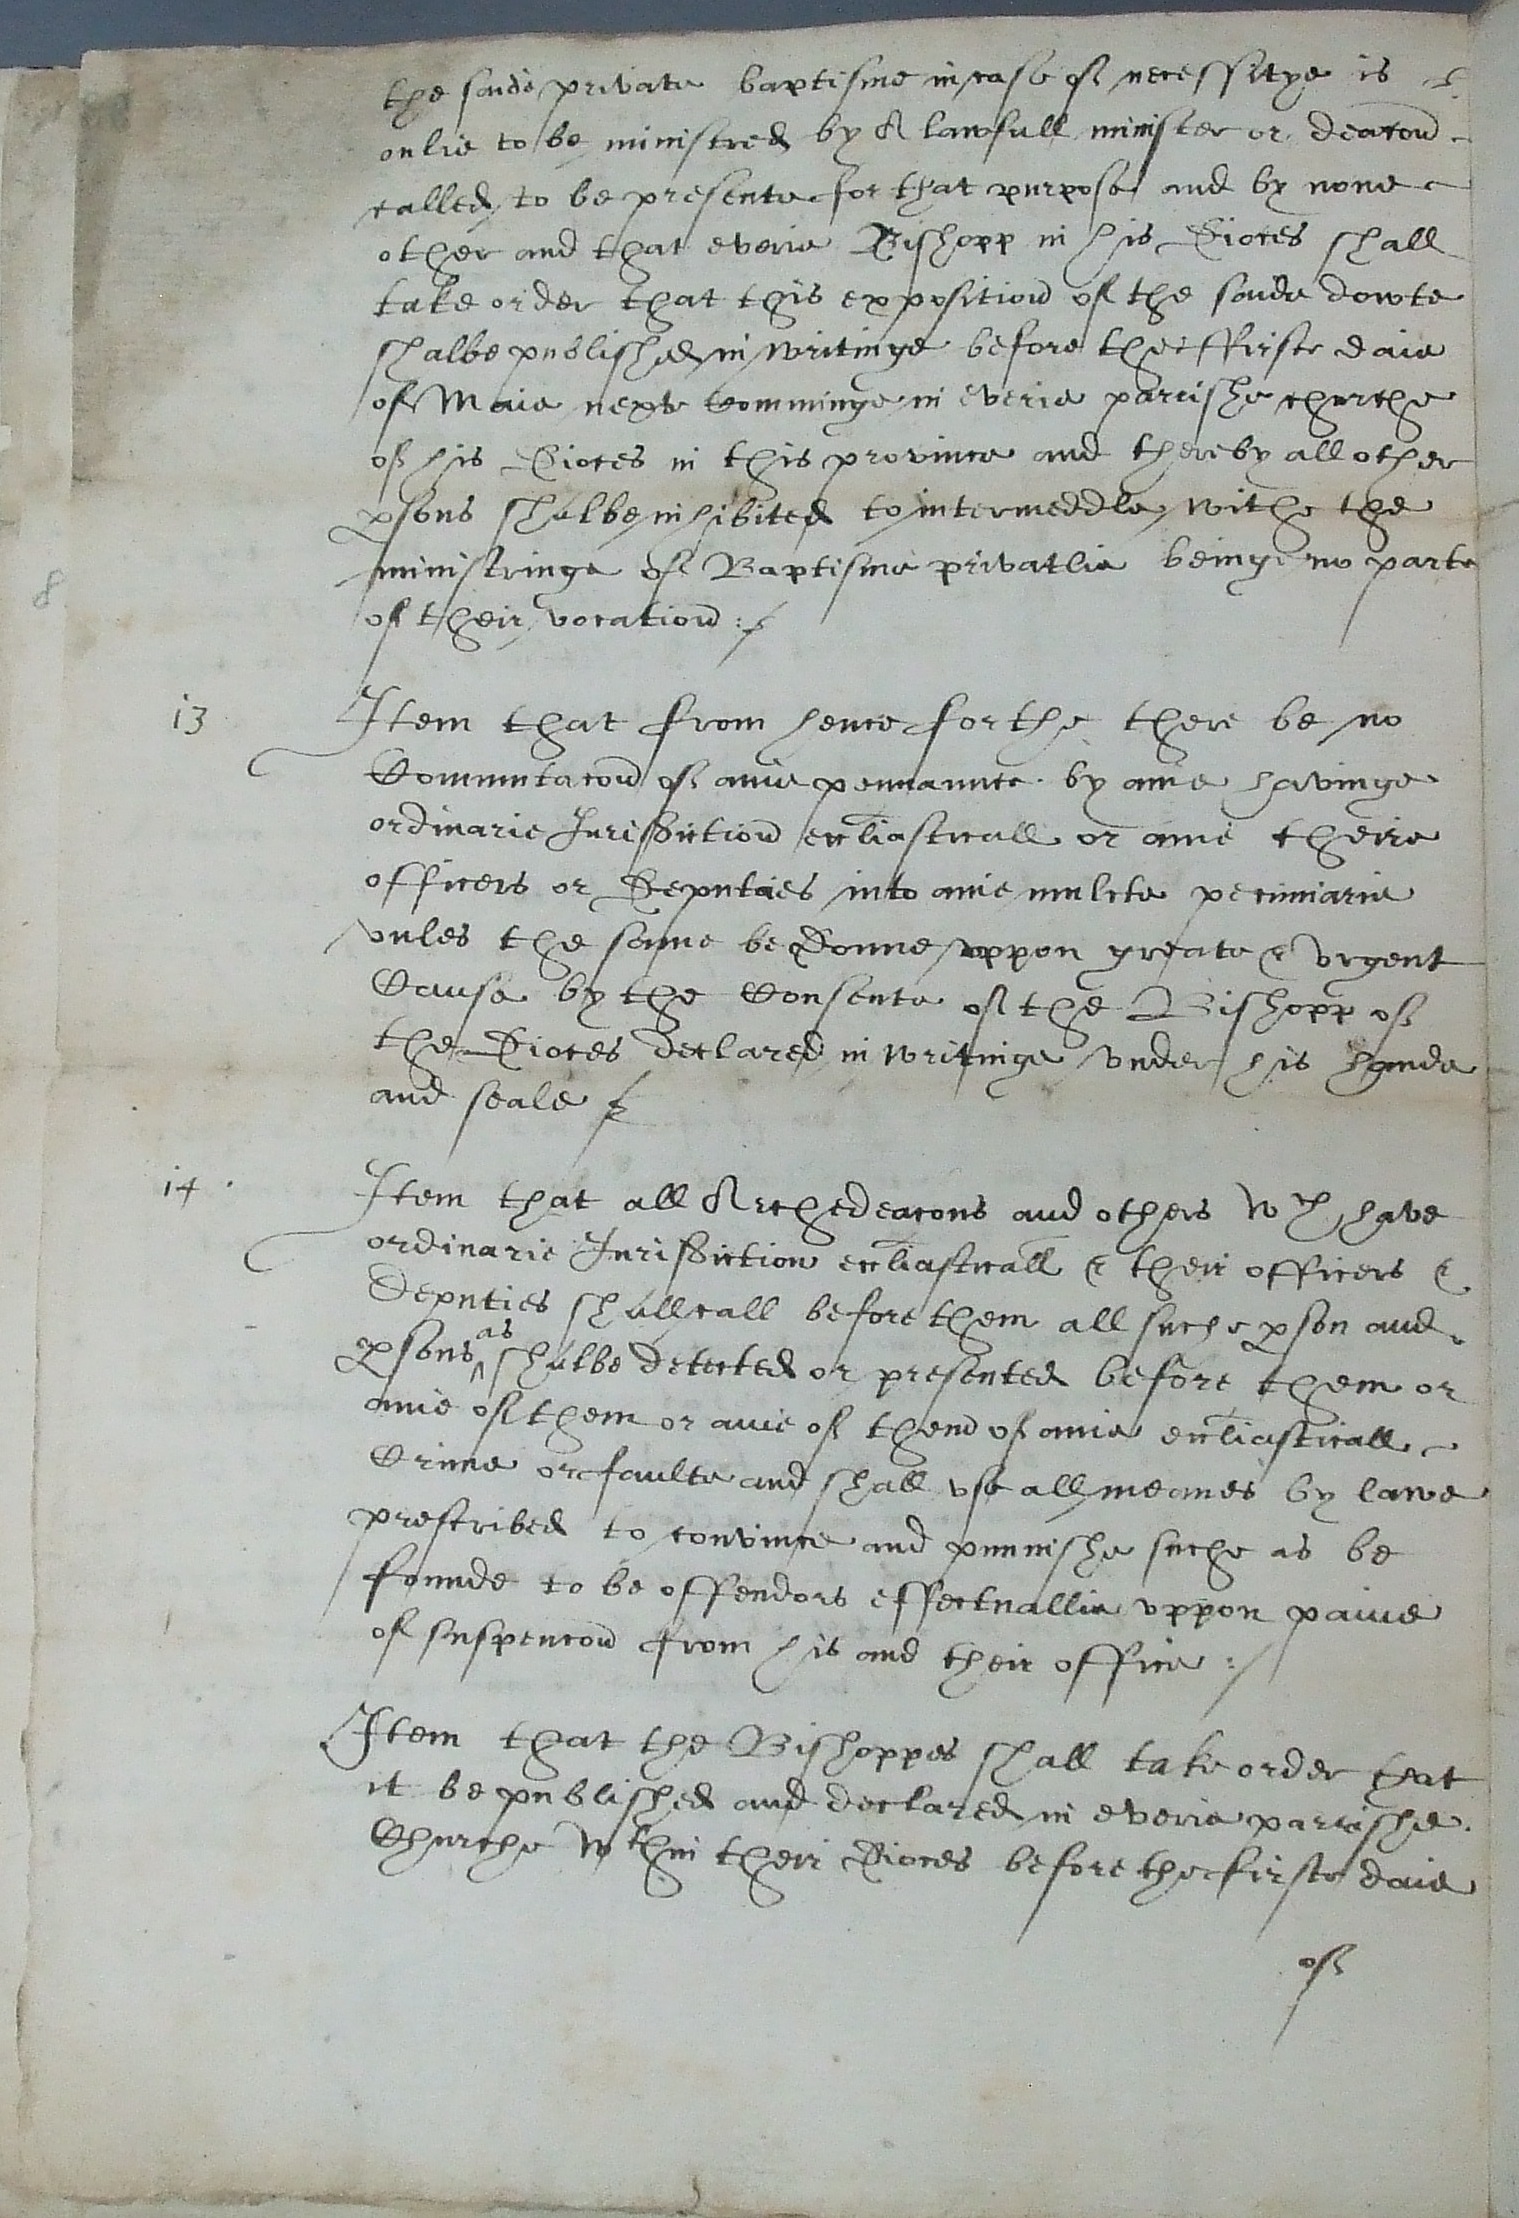 the saide private baptisme in case of necessitye is
onlie to be ministred by A lawfull minister or deacon
called to be presente for that purpose and by none
other and that everie Bishopp in his Dioces shall
take order that this exposition of the saide dowte
shalbe published in writinge before the ffirste daie
of Maie nexte Comminge in everie parrishe churche
of his Dioces in this province and thereby all other
psons shalbe inhibited to intermeddle withe the
ministringe of Baptisme privatlie beinge no parte
of their vocation :/
8
13 Item that from henceforthe there be no
Commutacon of anie pennaunce by anie havinge
ordinarie Jurisdiction eccliasticall or anie theire
officers or Deputies into anie mulcte pecuniarie
vnles the same be Donne vppon greate & vrgent
Cause by the Consente of the Bishopp of
the Dioces declared in writinge vnder his hande
and seale /
14 . Item that all Archedeacons and others wch have
ordinarie Jurisdiction eccliasticall & their officers &
Deputies shall call before them all suche pson and
psons ^as shalbe detected or presented before them or
anie of them or anie of them of anie eccliasticall
Crime or faulte and shall vse all meanes by lawe
prescribed to convince and punnishe suche as be
founde to be offendors effectuallie vppon paine
of suspencon from his and their office :/
Item that the Bishoppes shall take order that
it be published and declared in everie parrishe
Churche wthin their Dioces before the firste daie
of